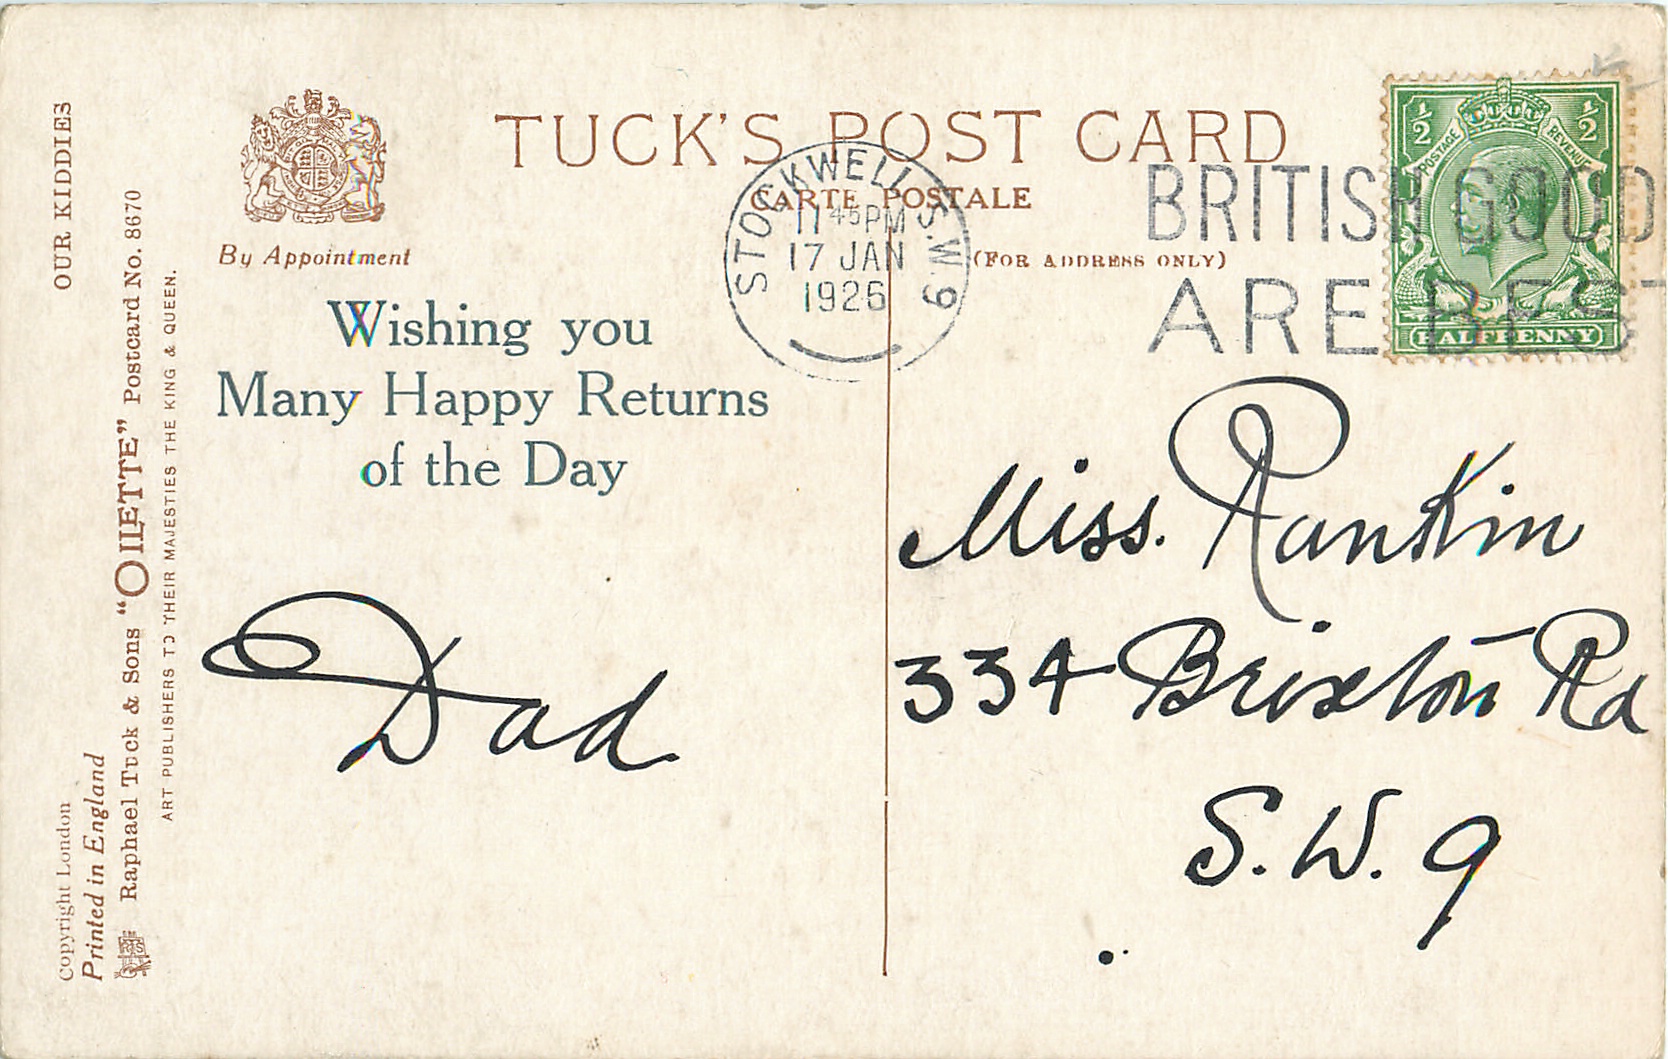 TUCK'S POST CARD
CARTE POSTALE
(FOR ADDRESS ONLY)
By Appointment
Wishing you
Many Happy Returns
of the Day
Dad
STOCKWELL S.W.9
11 45 PM
17 JAN
1926
BRITISH GOOD
ARE BEST
1/2 1/2
POSTAGE REVENUE
HALFPENNY
Miss. Rankin
334 Brixton Rd
S.W. 9
OUR KIDDIES
Copyright London
Printed in England
Raphael Tuck & Sons "OILETTE" Postcard No. 8670
ART PUBLISHERS TO THEIR MAJESTIES THE KING & QUEEN.